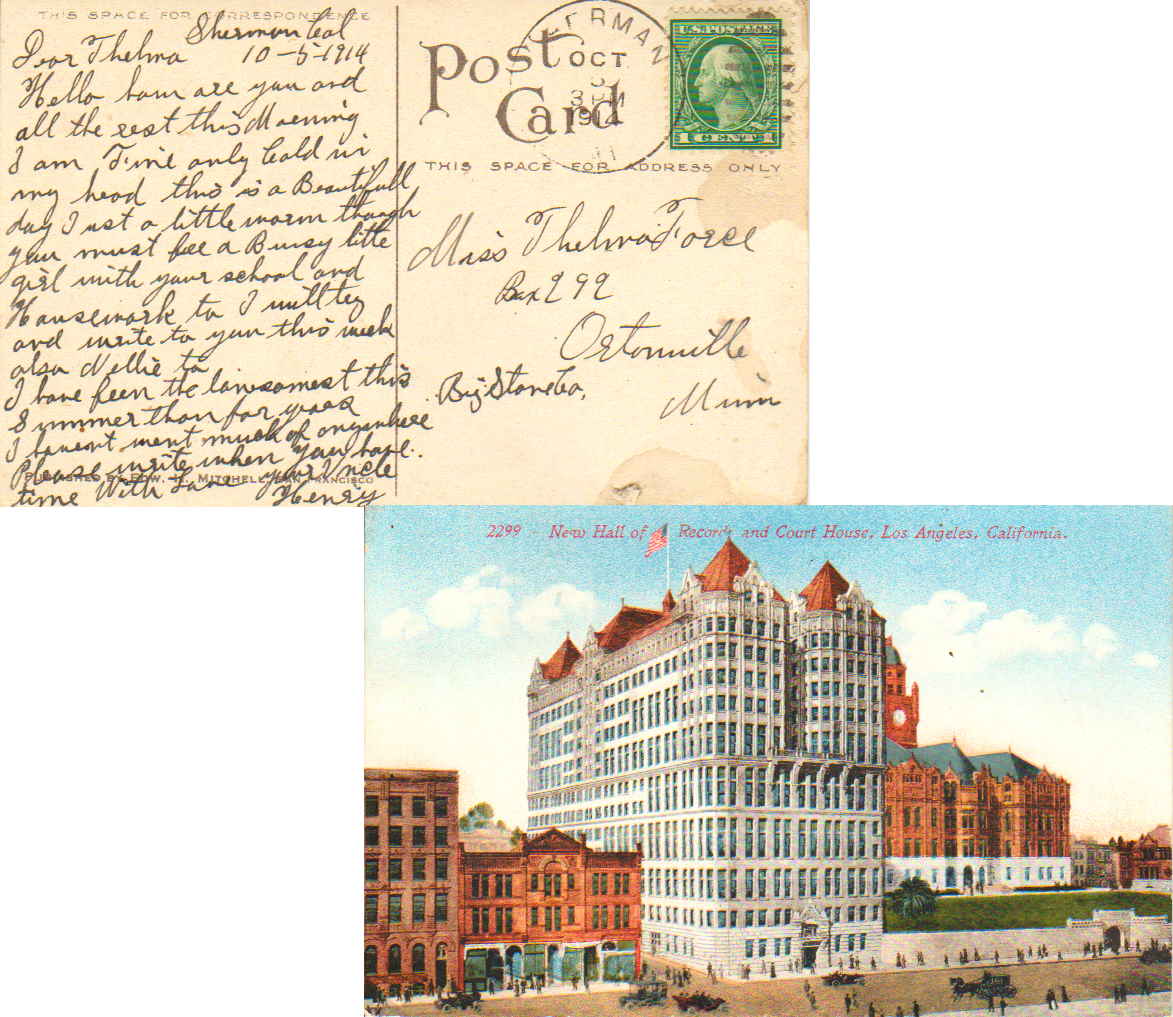 THIS SPACE FOR CORRESPONDENCE
Sherman Cal
Dear Thelma 10-5-1914
Hello ham are you and
all the rest this Morning
I am Fine only Cold in
my head this is a Beautifull
day Just a little warm though
you must bee a Buisy litte
girl with your school and
Housework to I will try
and write to you this week
also Nellie to
I have feen the lonesomest this
Summer than for years
I havent went much of anywhere
Please write when you have
PUBLISHED BY EDW. H. MITCHELL, SAN FRANCISCO
time With Love your Uncle
Henry
Post
Card
THIS SPACE FOR ADDRESS ONLY
SHERMAN
OCT
5
3 PM
1914
U.S. POSTAGE
1 CENT 1
Miss Thelma Force
Box 292
Ortonville
Big Stone Co,
Minn
2299 - New Hall of Records and Court House, Los Angeles, California.